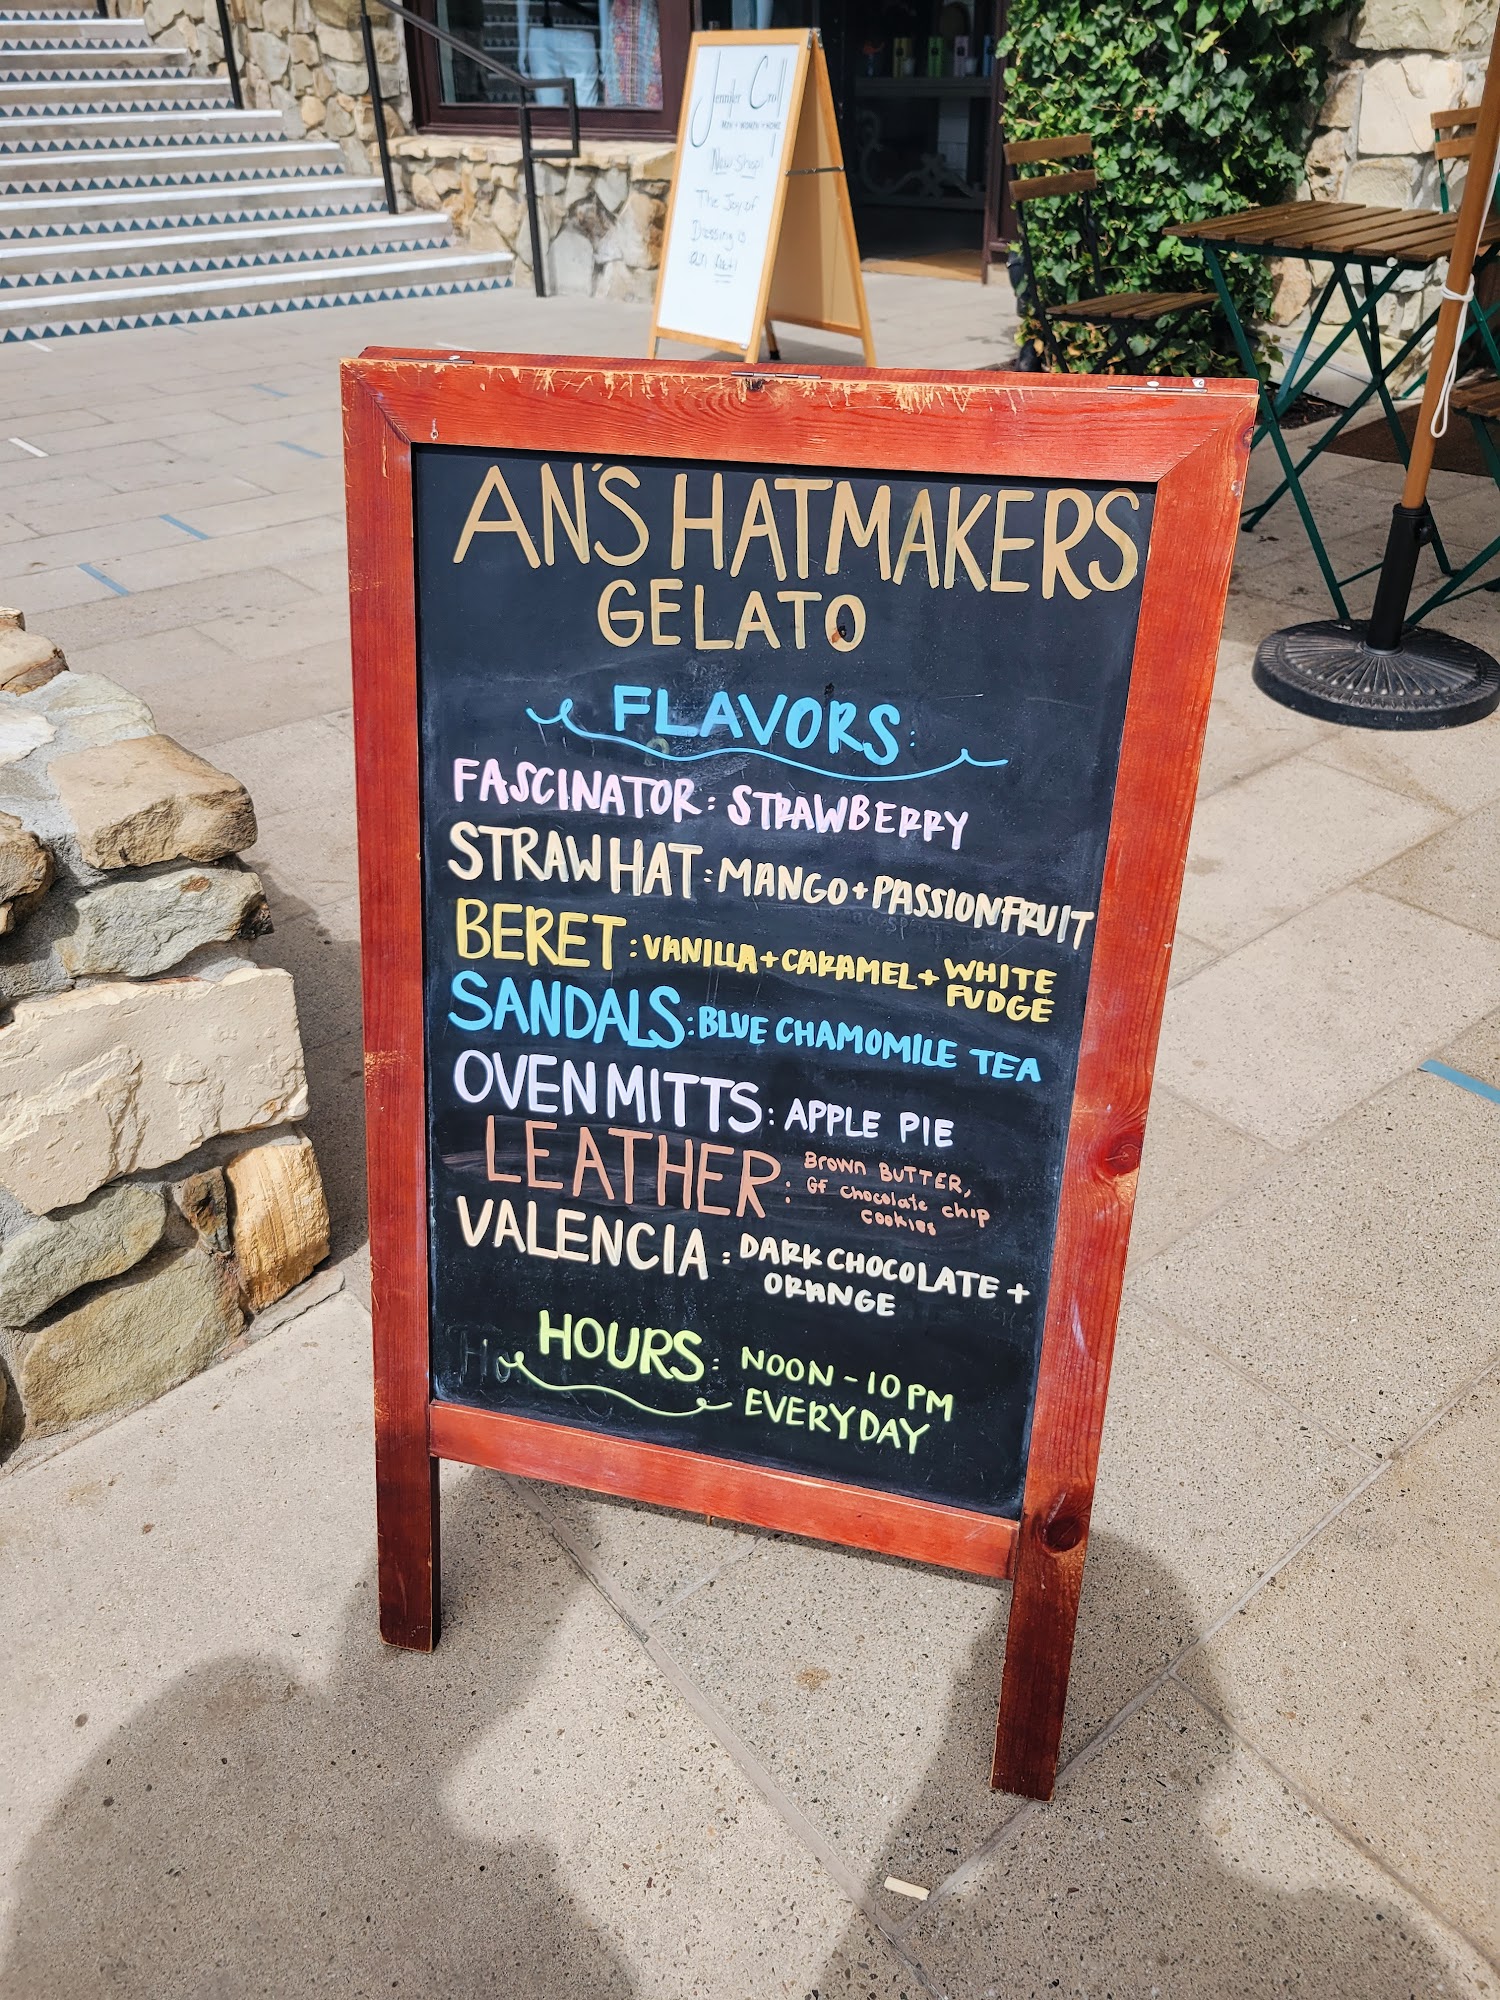 Jennifer Croll
MEN + WOMEN + HOME
New Shop!
The Joy of
Dressing is
an Art!
AN'S HATMAKERS
GELATO
FLAVORS:
FASCINATOR: STRAWBERRY
STRAW HAT: MANGO + PASSIONFRUIT
BERET: VANILLA + CARAMEL + WHITE
FUDGE
SANDALS: BLUE CHAMOMILE TEA
OVEN MITTS: APPLE PIE
LEATHER: BROWN BUTTER,
GF chocolate chip
cookies
VALENCIA: DARK CHOCOLATE +
ORANGE
HOURS: NOON - 10 PM
EVERYDAY